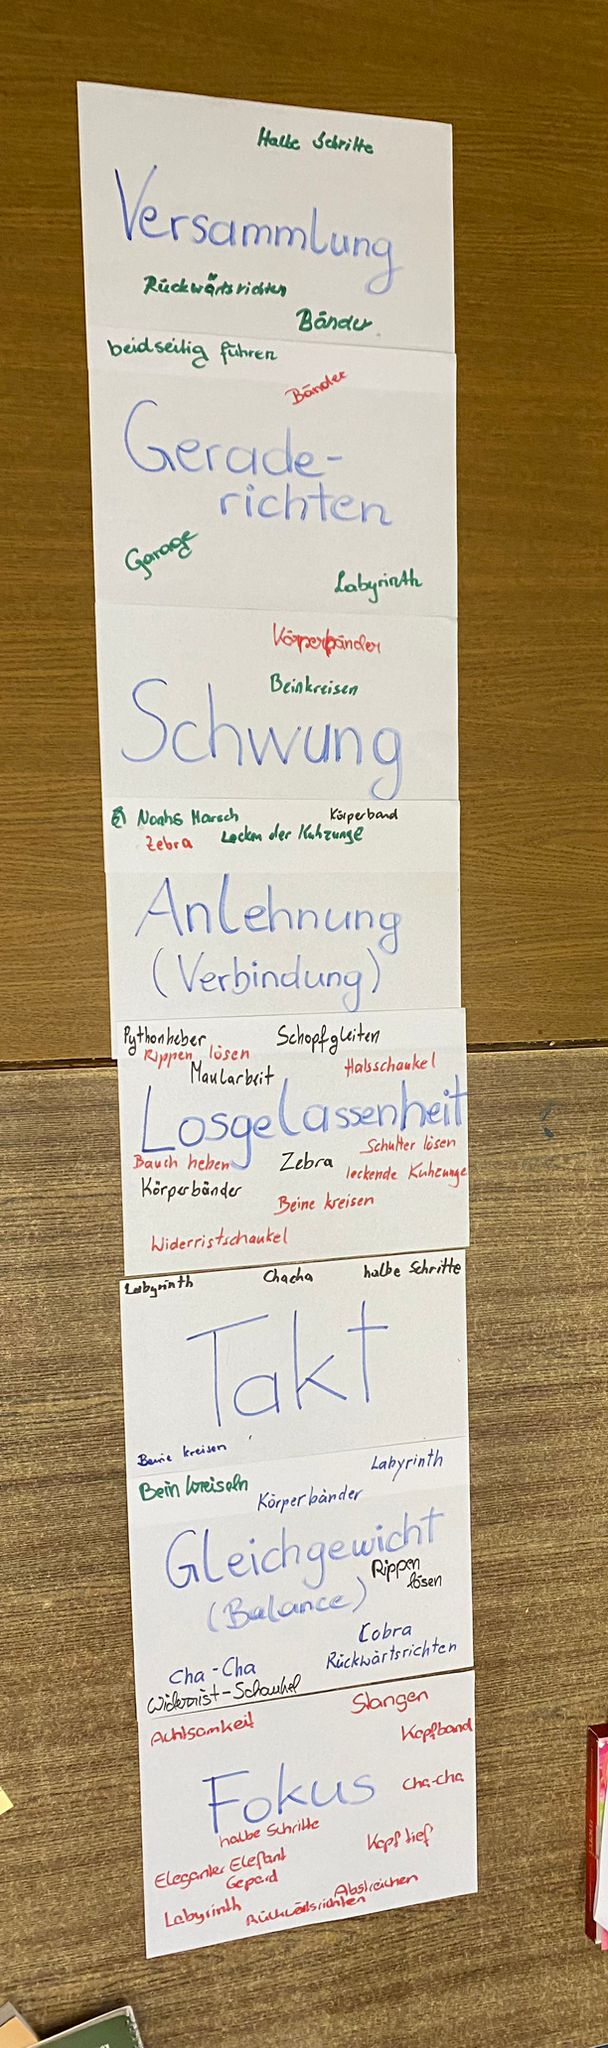 Halbe Schritte
Versammlung
Rückwärtsrichten
Bänder
beidseitig führen
Bänder
Gerade-
richten
Garage
Labyrinth
Körperbänder
Beinkreisen
Schwung
Noahs Marsch
Körperband
Zebra
Lecken der Kuhzunge
Anlehnung
(Verbindung)
Pythonheber
Schopfgleiten
Rippen lösen
Maularbeit
Halsschaukel
Losgelassenheit
Bauch heben
Zebra
Schulter lösen
leckende Kuhzunge
Körperbänder
Beine kreisen
Widerristschaukel
Labyrinth
Chacha
halbe Schritte
Takt
Beine kreisen
Labyrinth
Bein kreiseln
Körperbänder
Gleichgewicht
(Balance)
Rippen
lösen
Cobra
Cha-Cha
Rückwärtsrichten
Widerrist-Schaukel
Achtsamkeit
Slangen
Kopfband
Fokus
Cha-cha
halbe Schritte
Kopf tief
Eleganter Elefant
Gepard
Abstreichen
Labyrinth
Rückwärtsrichten